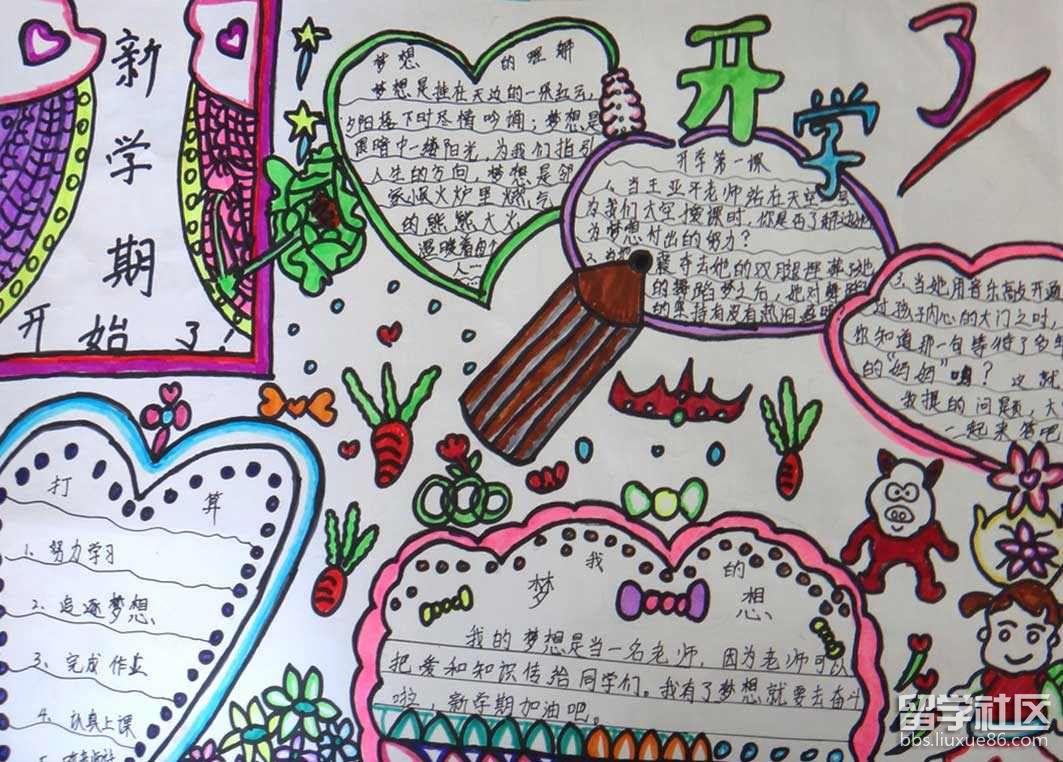 新学期
开始了!
开学了
梦想的理解
梦想是挂在天边的一张红云,
夕阳落下时尽情吟诵;梦想是
黑暗中一缕阳光,为我们指引
人生的方向,梦想是邻
家暖火炉里燃气
的熊熊大火
温暖着每个
人…
开学第一课
1、当王亚平老师站在天空
为我们太空授课时,你是否了解这她
为梦想付出的努力?
夺去她的双腿
的舞蹈梦之后,她对舞蹈
的坚持有没有热泪盈眶
3、当她用音乐敲开通
过孩子内心的大门之时,
你知道那一句等待了多年
的“妈妈”吗?这就
我提的问题,大
一起来答吧
打算
1、努力学习
2、追逐梦想
3、完成作业
4、认真上课
我的梦想
我的梦想是当一名老师,因为老师可以
把爱和知识传给同学们。我有了梦想就要去奋斗
啦,新学期加油吧。
留学社区
bbs.liuxue86.com